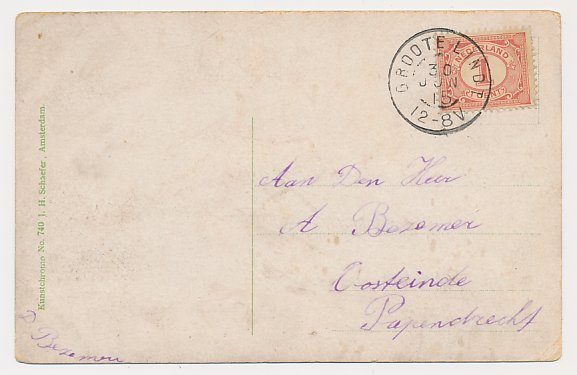 GROOTE LINDT
30
JUN
15
12-8V
NEDERLAND
1
CENT
Aan Den Heer
A Bezemer
Oosteinde
Papendrecht
Kunstchromo No. 740 J. H. Schaefer, Amsterdam.
Bezemer